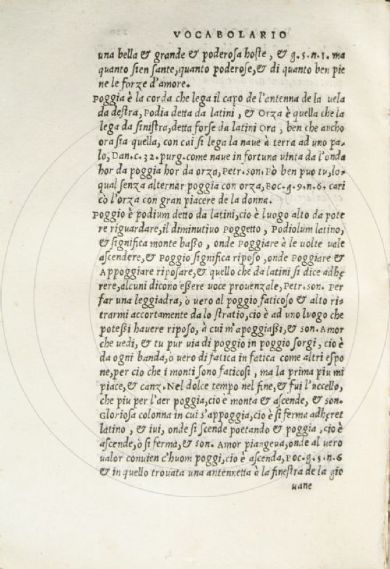 VOCABOLARIO
una bella & grande & poderosa hoste, & g.5.n.1. ma
quanto sien sante, quanto poderose, & di quanto ben pie
ne le forze d'amore.
Poggia è la corda che lega il capo de l'antenna de la uela
da destra, Podia detta da latini, & Orza è quella che la
lega da sinistra, detta forse da latini Ora, ben che ancho
ora sia quella, con cui si lega la naue à terra ad uno pa-
lo, Dan.c.32. purg. come naue in fortuna uinta da l'onda
hor da poggia hor da orza, Petr.son. Fò ben puo tu, lo-
qual senz' alternar poggia con orza, Boc.g.9.n.6. cari
cò l'orza con gran piacere de la donna.
Poggio è podium detto da latini, cio è luogo alto da pote
re riguardare, il diminutiuo Poggetto, Podiolum latino,
& significa monte basso, onde Poggiare è le uolte uale
ascendere, & Poggio significa riposo, onde Poggiare &
Appoggiare riposare, & quello che da latini si dice adhę
rere, alcuni dicono essere uoce prouenzale, Petr.son. Per
far una leggiadra, ò uero al poggio faticoso & alto ris
trarmi accortamente da lo stratio, cio è ad uno luogo che
potessi hauere riposo, à cui m'appoggiassi, & son. Amor
che uedi, & tu pur uia di poggio in poggio sorgi, cio è
da ogni banda, ò uero di fatica in fatica come altri espo
ne, per cio che i monti sono faticosi, ma la prima piu mi
piace, & canz. Nel dolce tempo nel fine, & fui l'uccello,
che piu per l'aer poggia, cio è monta & ascende, & son.
Gloriosa colonna in cui s'appoggia, cio è si ferma adhęret
latino, & iui, onde si scende poetando & poggia, cio è
ascende, ò si ferma, & son. Amor piangeua, onde al uero
ualor conuien c'huom poggi, cio è ascenda, Boc.g.5.n.6
& in quello trouata una antennetta è la finestra de la gio
uane